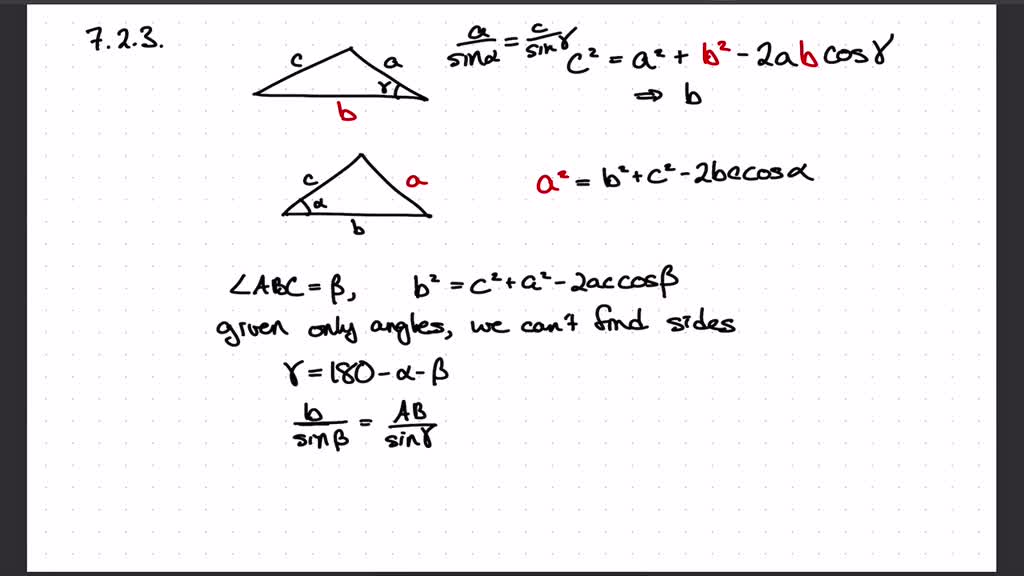 7.2.3.
c a γ b
a/sinα = c/sinγ
c² = a² + b² - 2ab cosγ
⇒ b
c a α b
a² = b² + c² - 2bc cosα
∠ABC = β, b² = c² + a² - 2ac cosβ
given only angles, we can't find sides
γ = 180 - α - β
b/sinβ = AB/sinγ